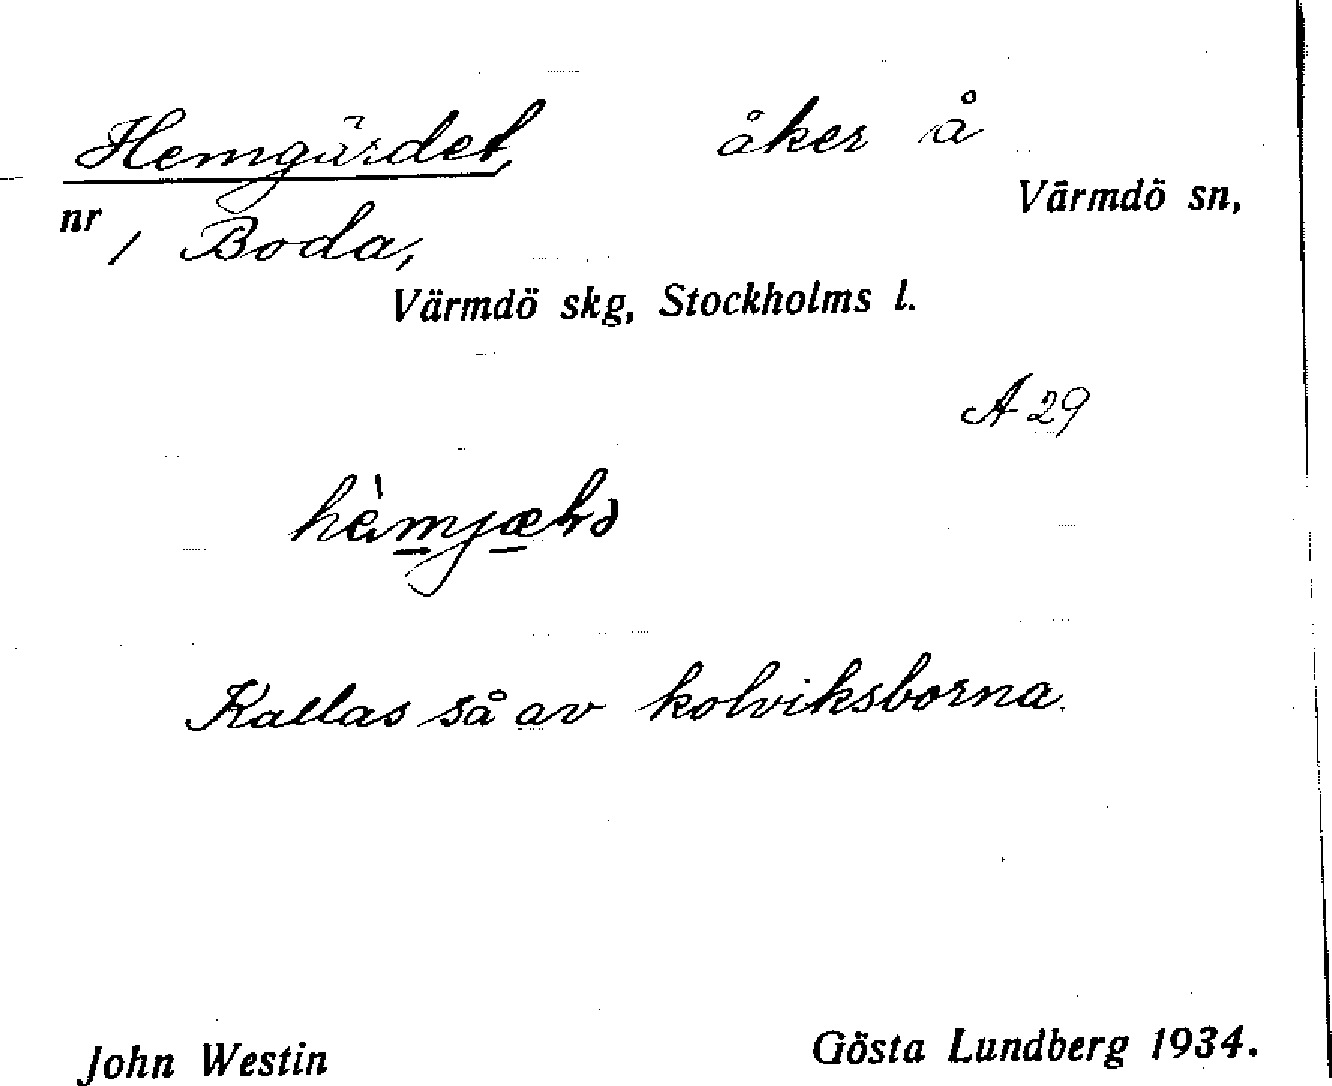 Hemgärdet, åker å
Värmdö sn,
nr 1 Boda,
Värmdö skg, Stockholms l.
A 29
Kallas så av kolviksborna.
John Westin Gösta Lundberg 1934.